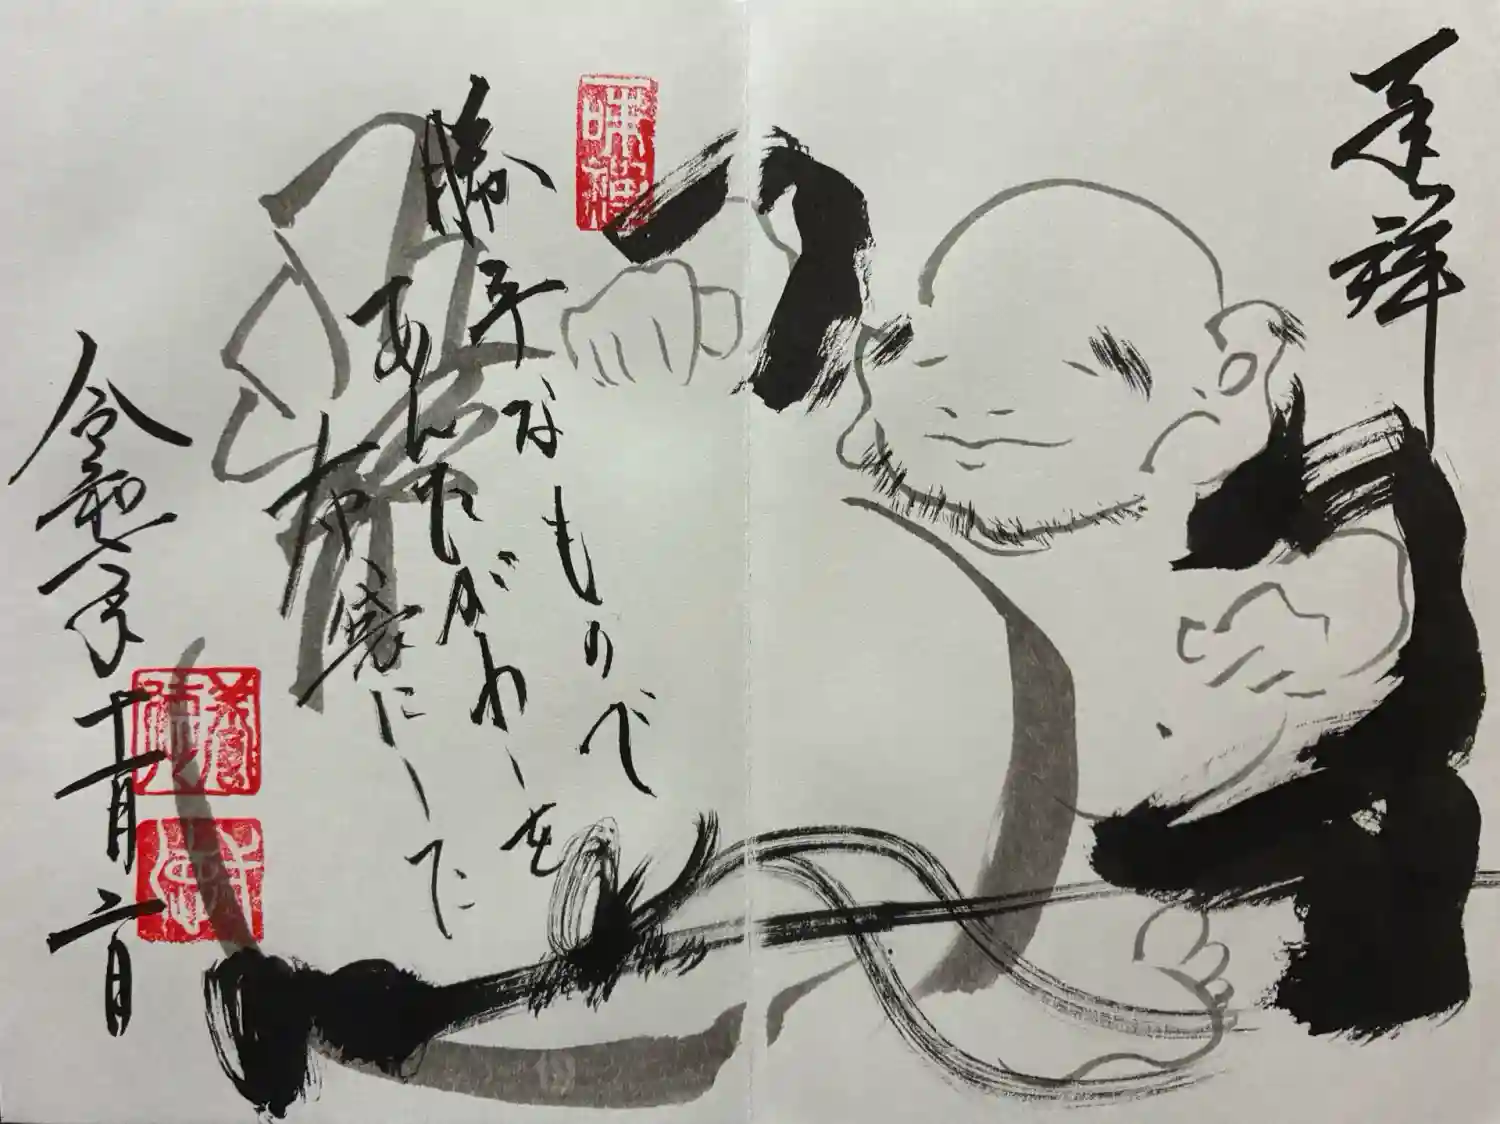 奉拝
勝手なもので
あんたがわしを
布袋にした
令和 年十一月二日